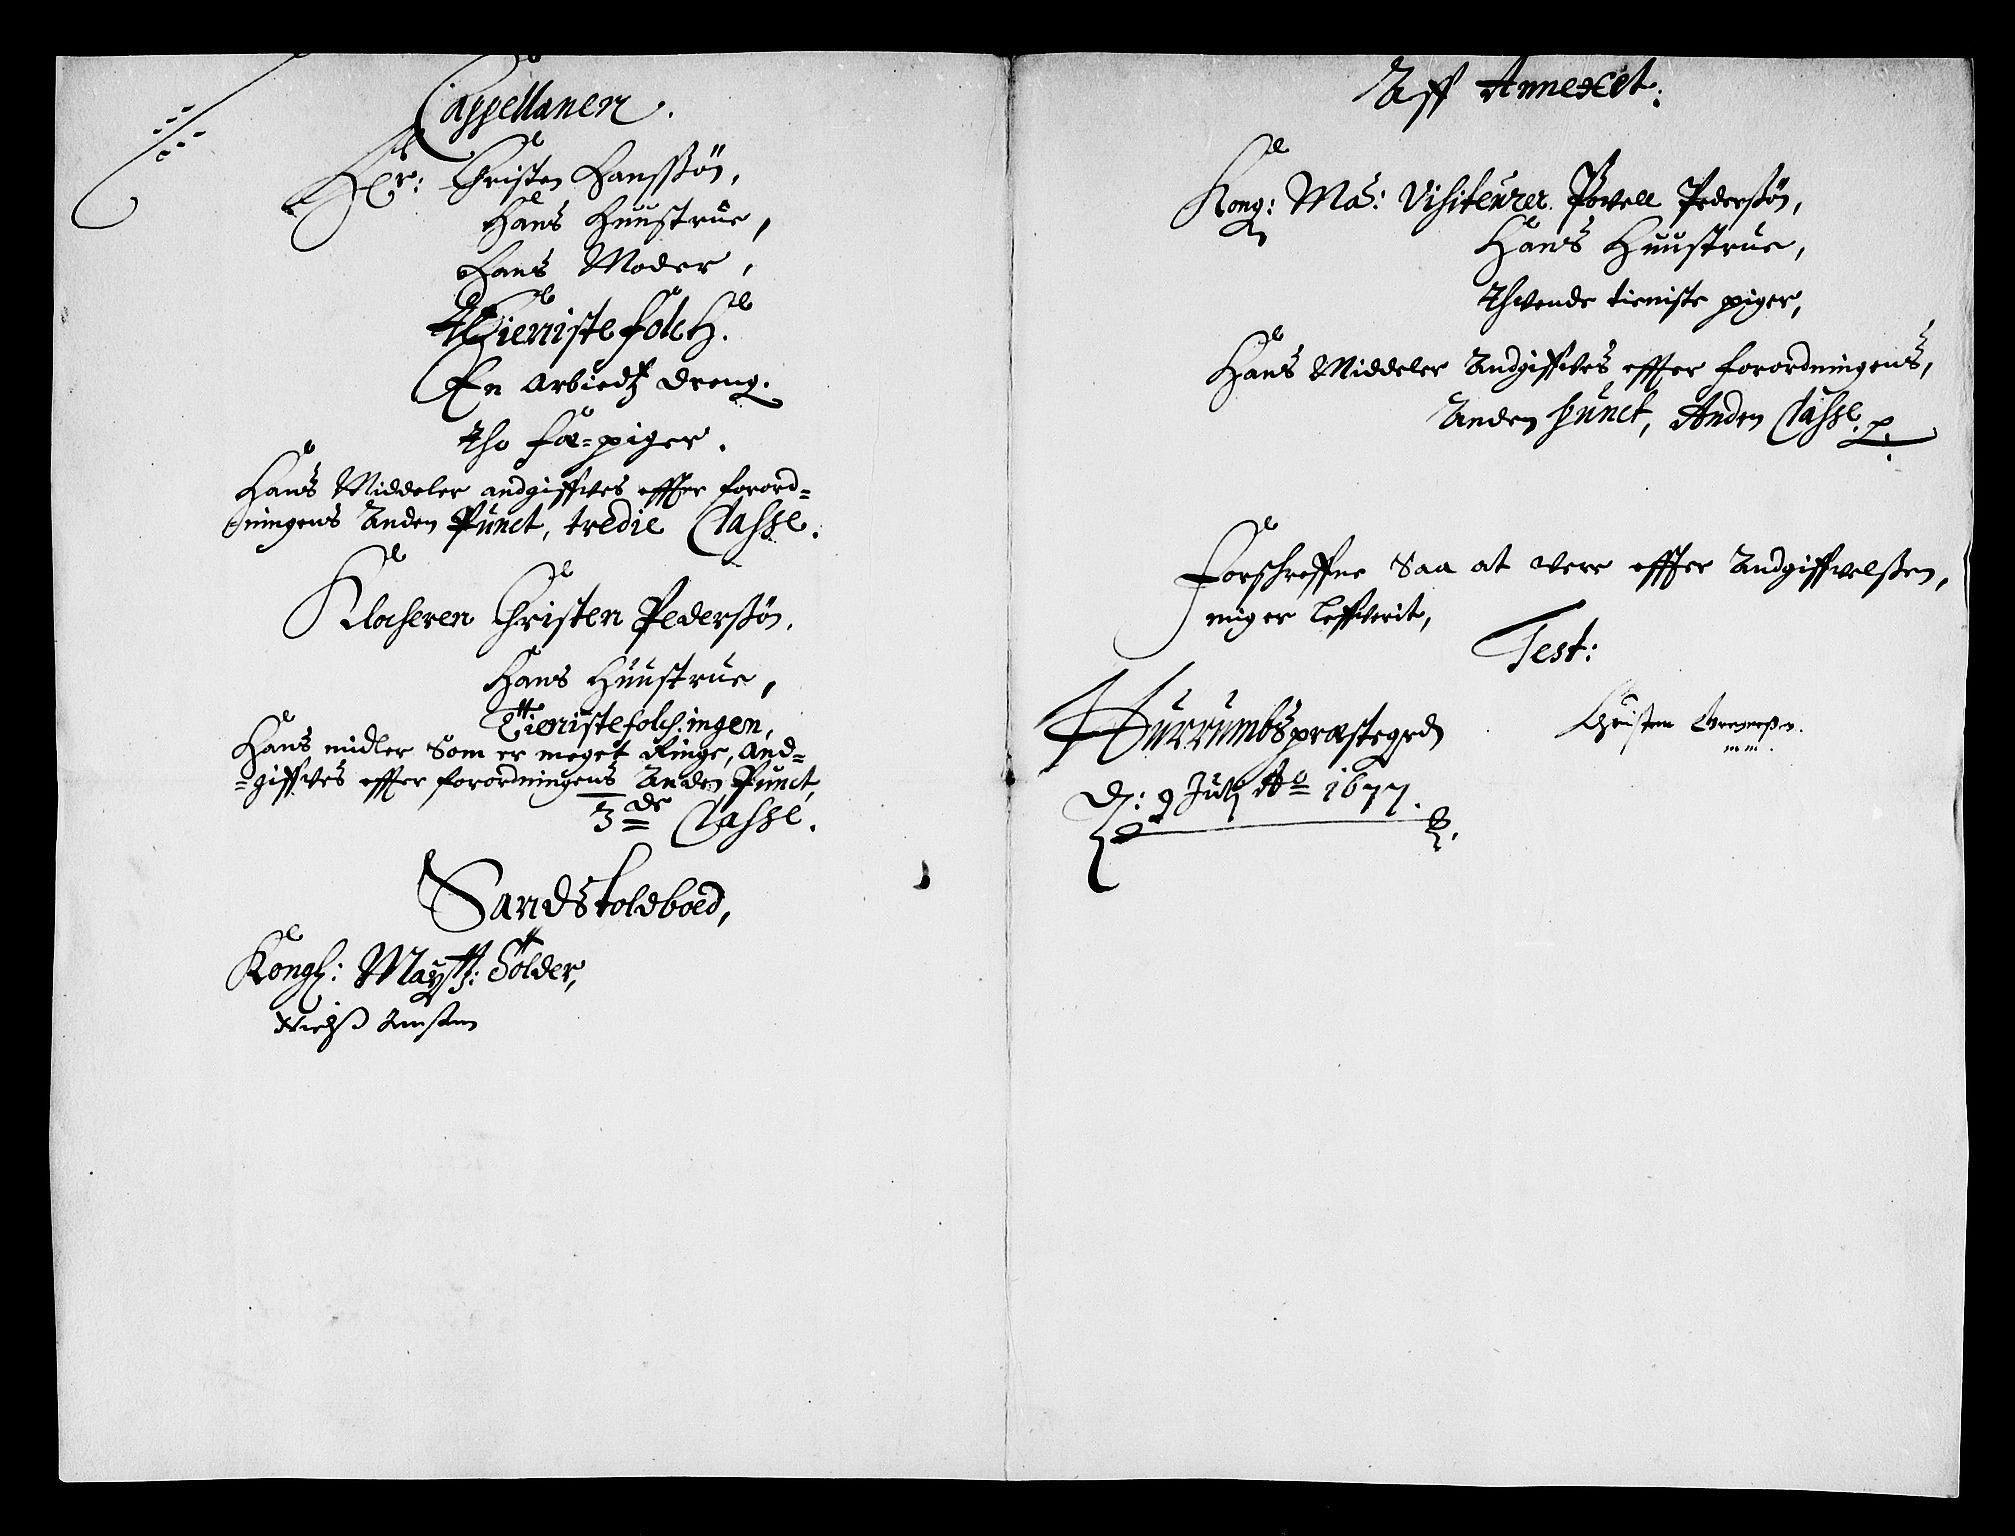 Cappellanen.
Hr: Christen Hanssøn,
Hans Huustrue,
Hans Moder,
Thienistefolch.
En arbiedtz dreng.
Tho fæ-piger.
Hans Middeler andgiffves effter forord=
ningens Anden Punct, tredie Classe.
Klocheren Christen Pederssøn,
Hans Huustrue,
Tienistefolch ingen,
Hans midler Som er meget Ringe, And=
=giffves effter forordningens Anden Punct,
3de Classe.
Sands toldboed,
Kongl: Maytz: Tolder,
Nielss
Aff Annexet:
Kong: Ma: Visiteurer Povell Pederssøn,
Hans Huustrue,
Thvende tieniste piger,
Hans Middeler Andgiffves effter forordningens,
Anden Punct, Anden Classe.
Forschreffne Saa at vere effter Andgiffvelssen,
mig er leffverit,
Test:
Hurrumbs præstegrd
D: 9 July Ao 1677.
Christen